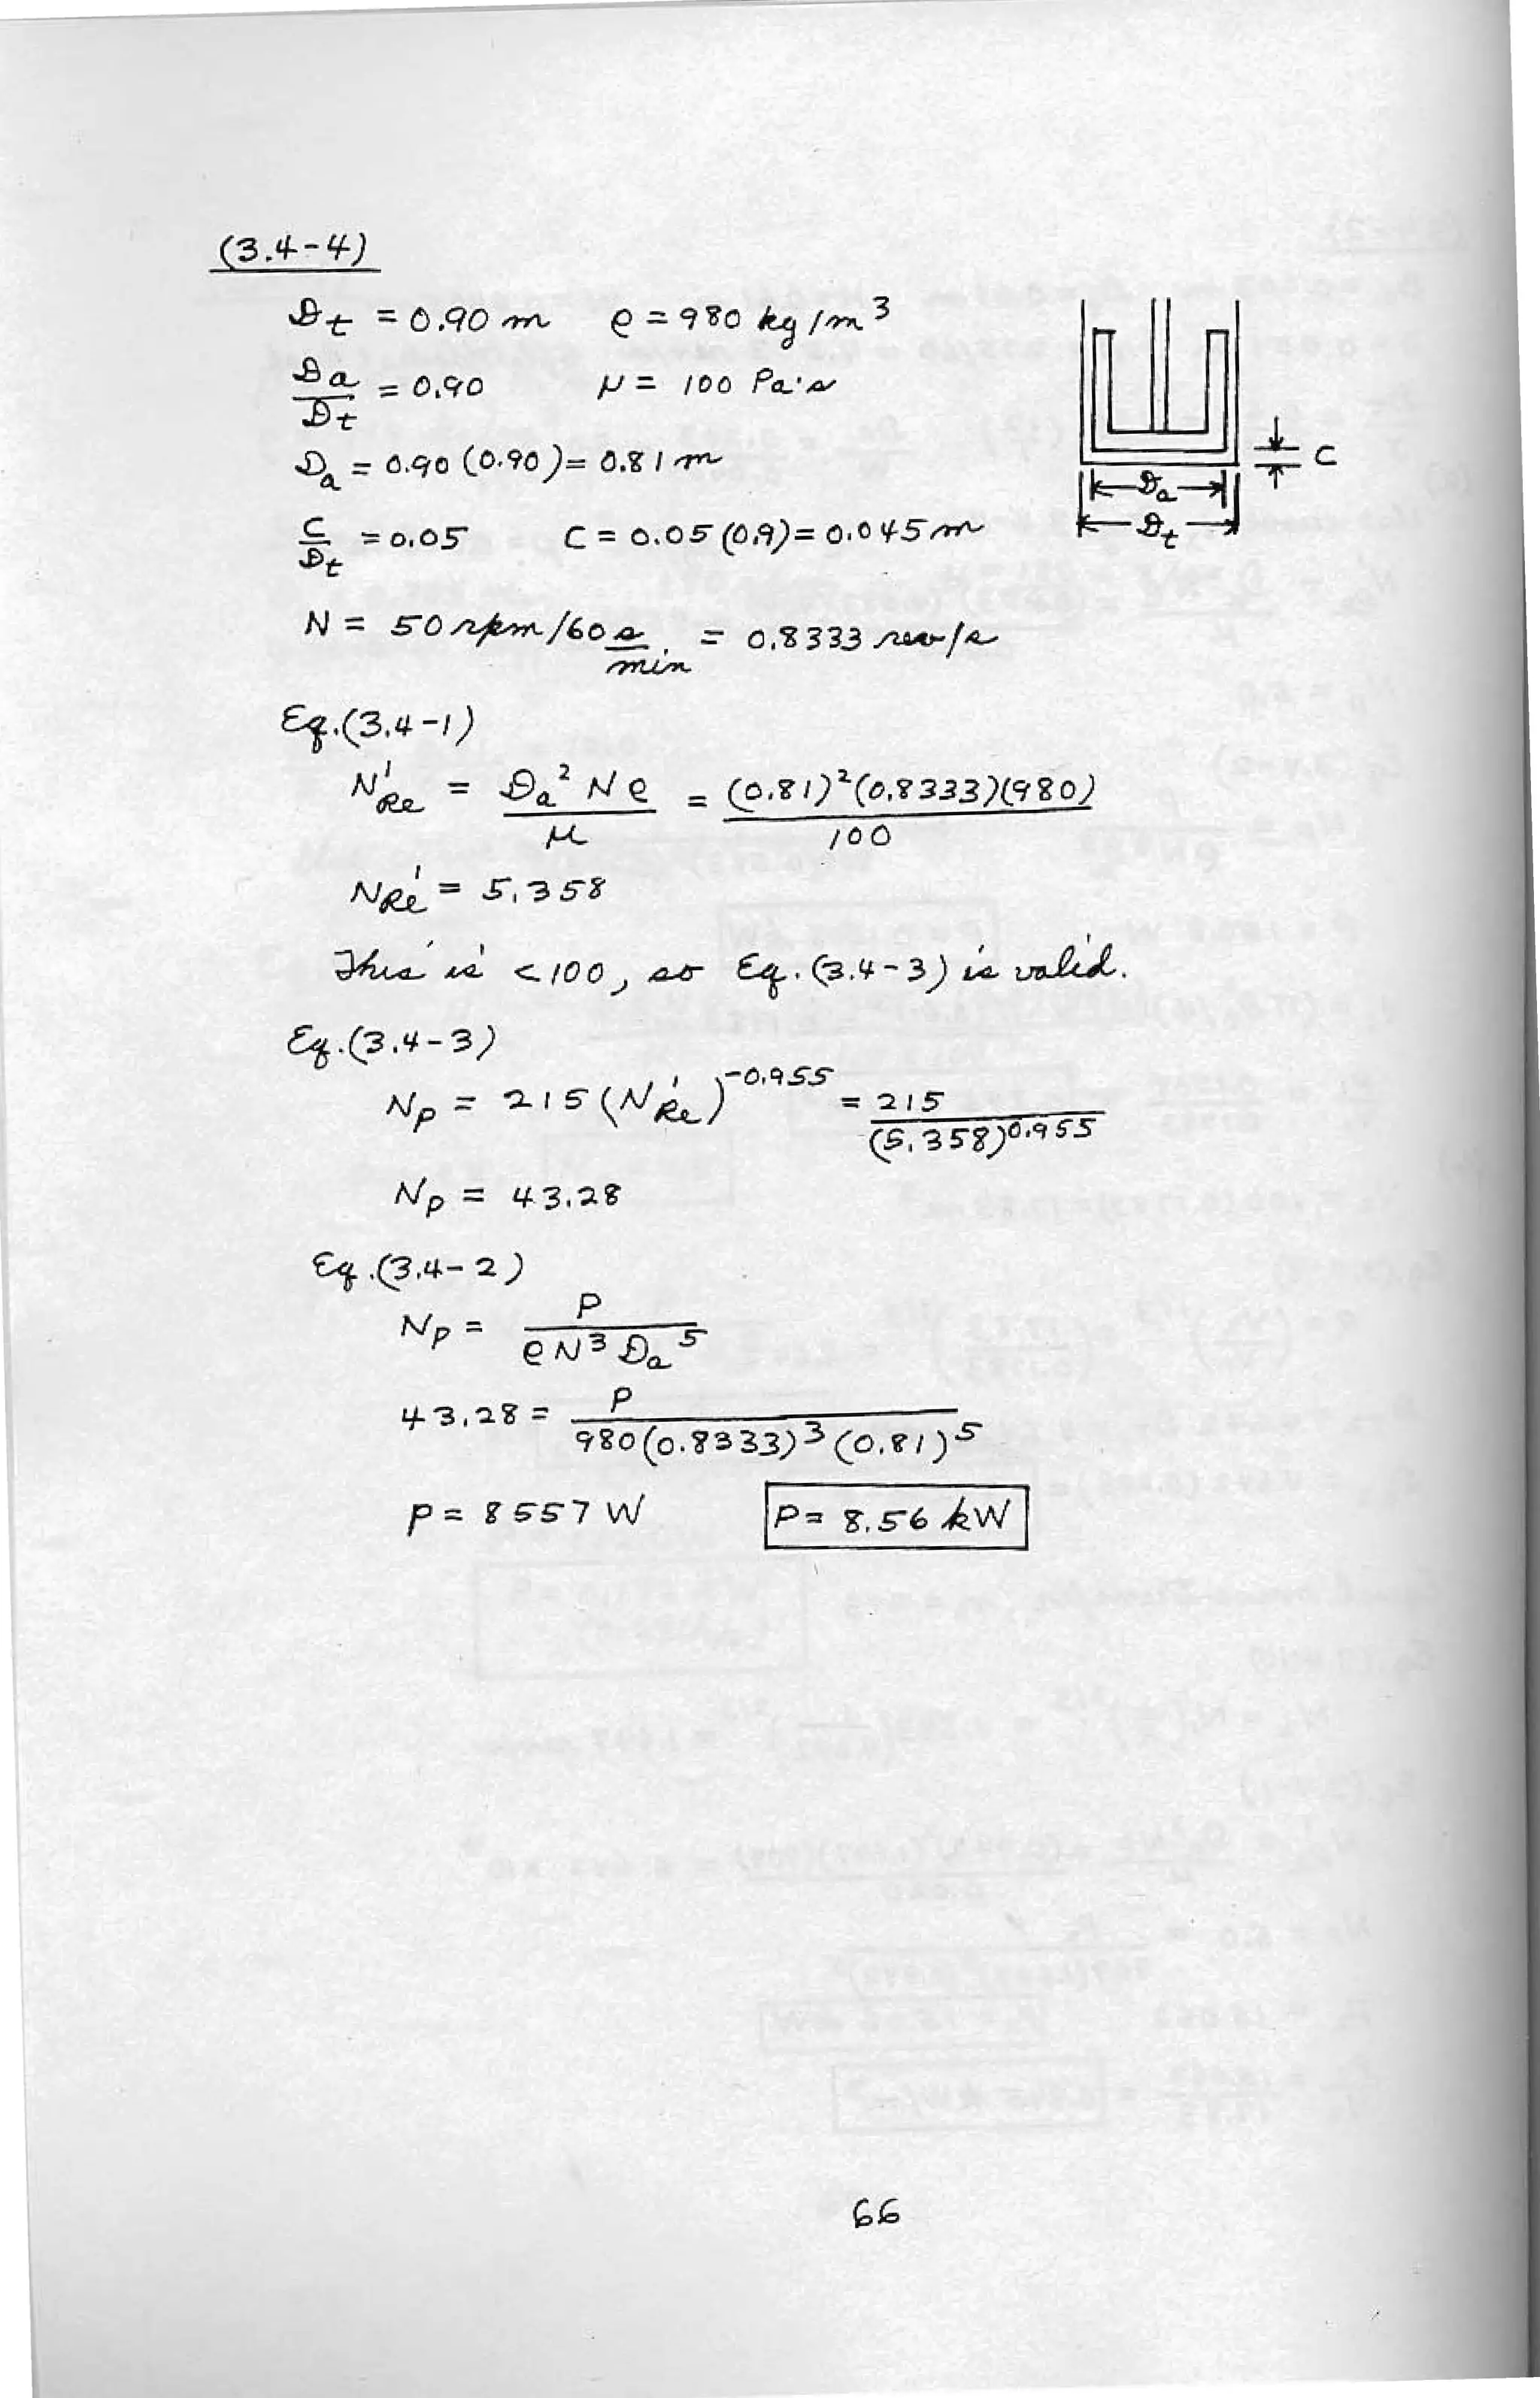 (3.4-4)
Dt = 0.90 m ρ = 980 kg/m³
Da/Dt = 0.90 μ = 100 Pa·s
Da = 0.90 (0.90) = 0.81 m
C/Dt = 0.05 C = 0.05 (0.9) = 0.045 m
C
Da
Dt
N = 50 rpm/60 s/min = 0.8333 rev/s
Eq.(3.4-1)
N'Re = Da² N ρ / μ = (0.81)²(0.8333)(980) / 100
NRe' = 5.358
This is < 100, so Eq. (3.4-3) is valid.
Eq.(3.4-3)
Np = 215 (N'Re)^-0.955 = 215 / (5.358)^0.955
Np = 43.28
Eq.(3.4-2)
Np = P / ρ N³ Da⁵
43.28 = P / 980(0.8333)³(0.81)⁵
P = 8557 W P = 8.56 kW
66